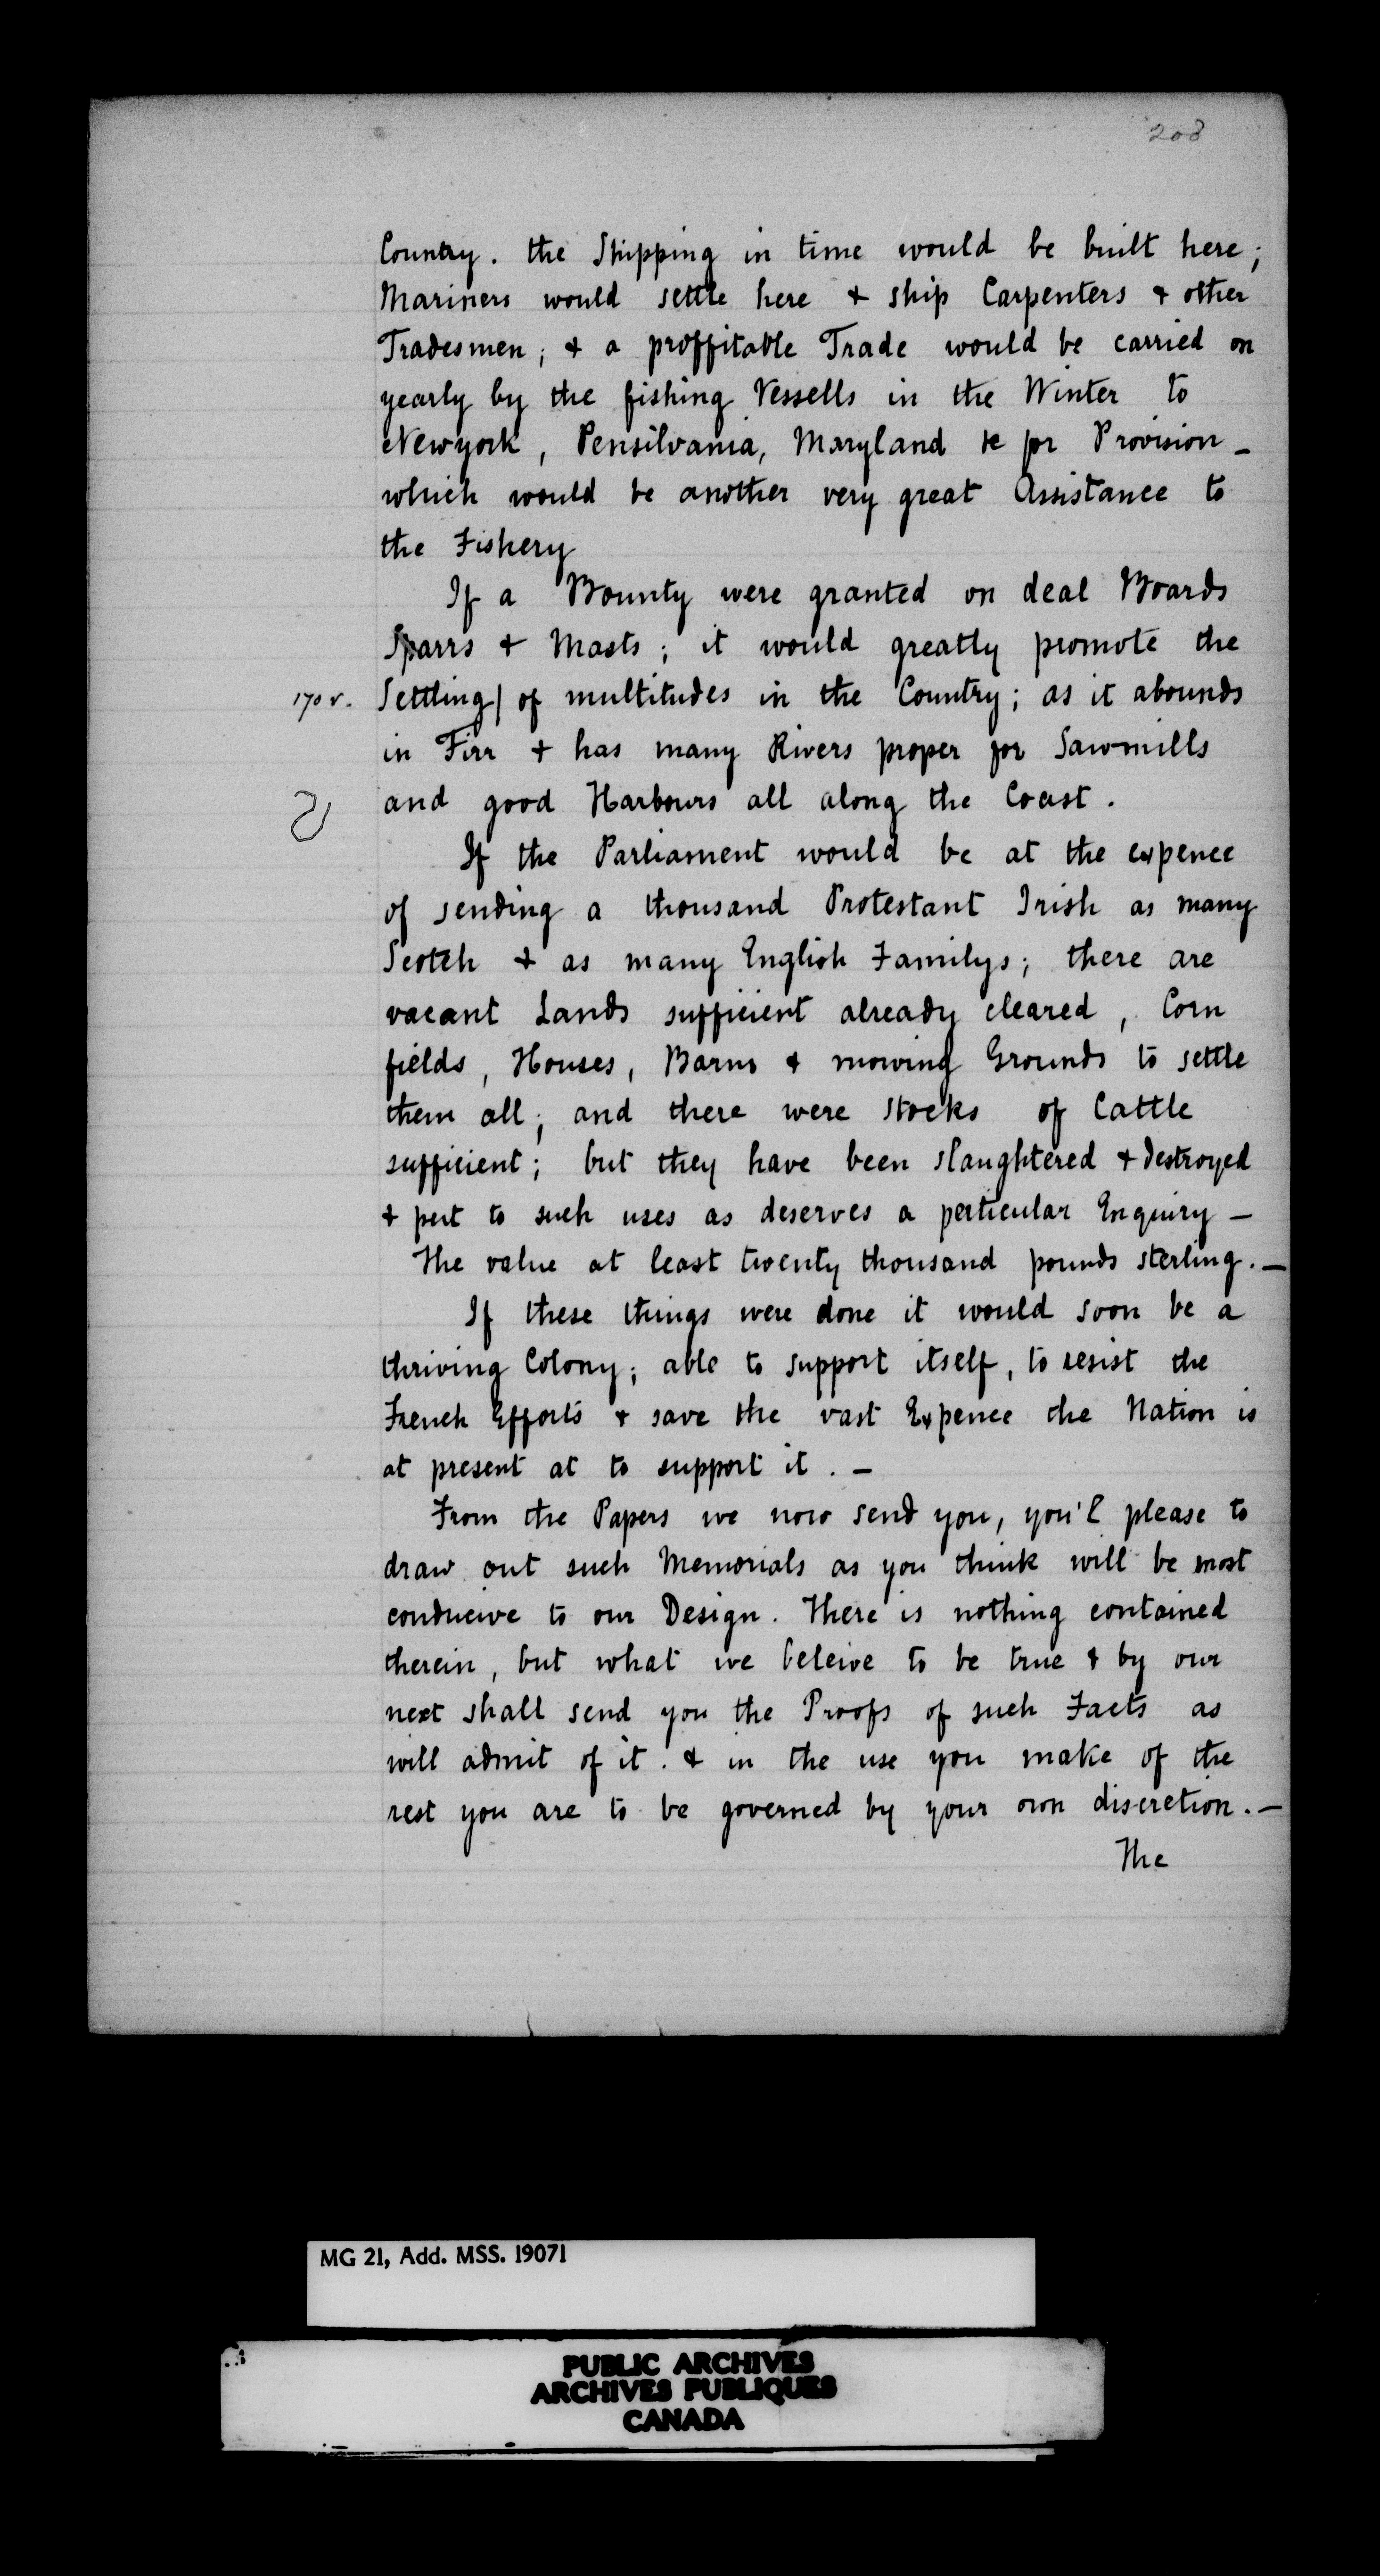 208
Country. the Shipping in time would be built here;
Mariners would settle here & ship Carpenters & other
Tradesmen; & a proffitable Trade would be carried on
yearly by the fishing Vessells in the Winter to
Newyork, Pensilvania, Maryland &c for Provision _
which would be another very great Assistance to
the Fishery
If a Bounty were granted on deal Boards
Sparrs & Masts; it would greatly promote the
170 v. Settling/ of multitudes in the Country; as it abounds
in Firr & has many Rivers proper for Sawmills
and good Harbours all along the Coast.
If the Parliament would be at the expence
of sending a thousand Protestant Irish as many
Scotch & as many English Familys; there are
vacant Lands sufficient already cleared, Corn
fields, Houses, Barns & mowing Grounds to settle
them all; and there were stocks of Cattle
sufficient; but they have been slaughtered & destroyed
& put to such uses as deserves a perticular Enquiry —
The value at least twenty thousand pounds sterling. —
If these things were done it would soon be a
thriving Colony; able to support itself, to resist the
French Efforts & save the vast Expence the Nation is
at present at to support it. —
From the Papers we now send you, you'l please to
draw out such Memorials as you think will be most
conducive to our Design. There is nothing contained
therein, but what we beleive to be true & by our
next shall send you the Proofs of such Facts as
will admit of it. & in the use you make of the
rest you are to be governed by your own discretion. —
The
MG 21, Add. MSS. 19071
PUBLIC ARCHIVES
ARCHIVES PUBLIQUES
CANADA